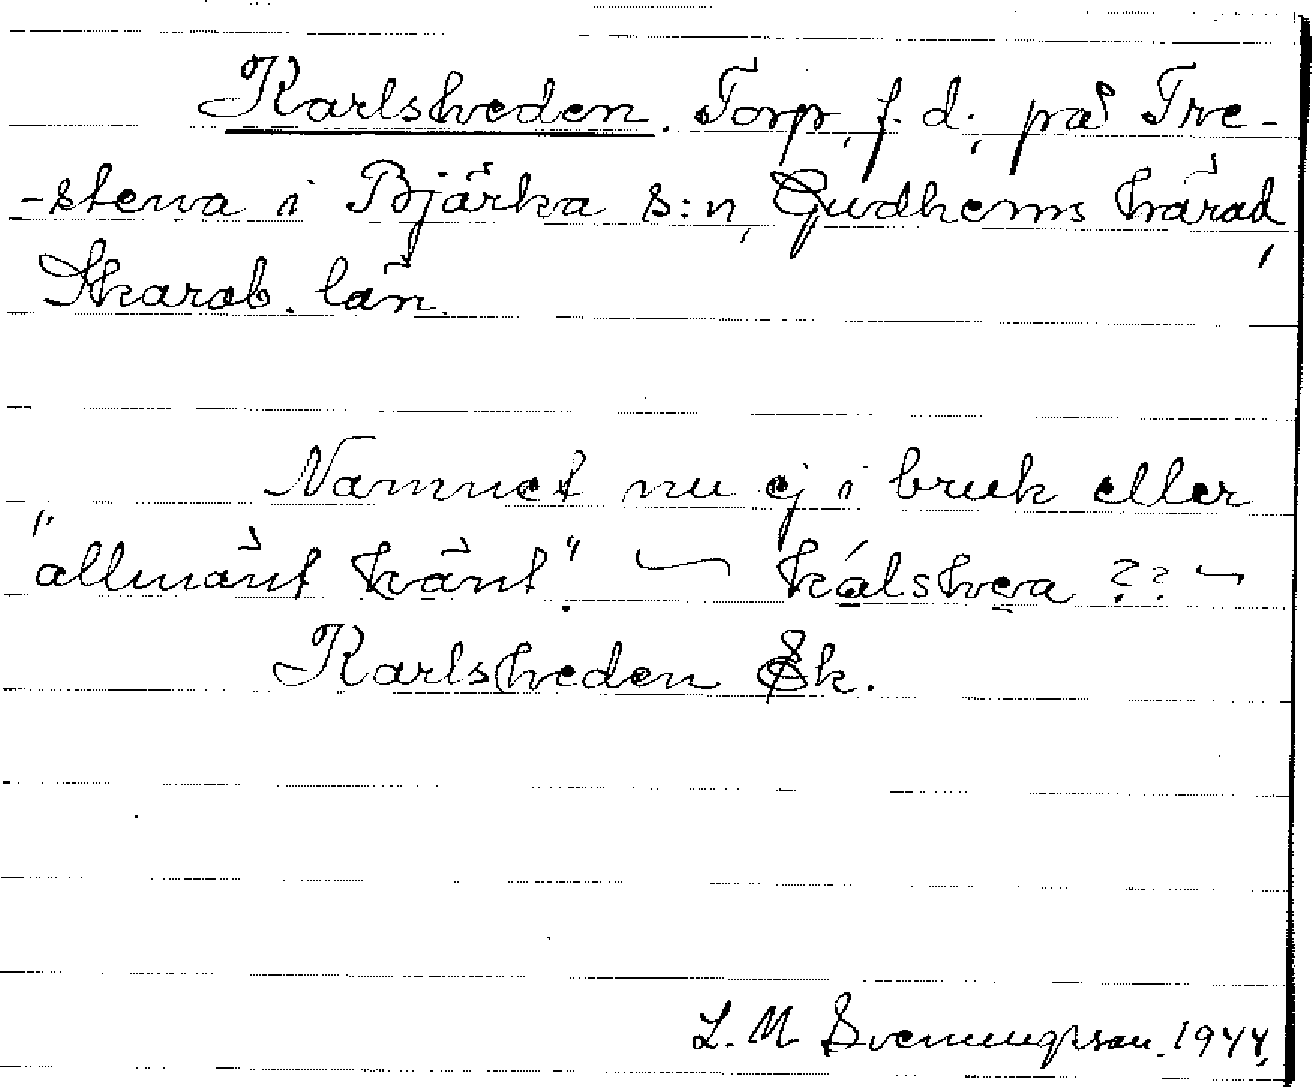 Karlsheden. Torp, f. d., på Tre-
-stena i Bjärka s:n, Gudhems härad,
Skarab. län.
Namnet nu ej i bruk eller
"allmänt känt". — kálshea ?? —
Karlsheden Sk.
L. M. Svenungsson. 1944.